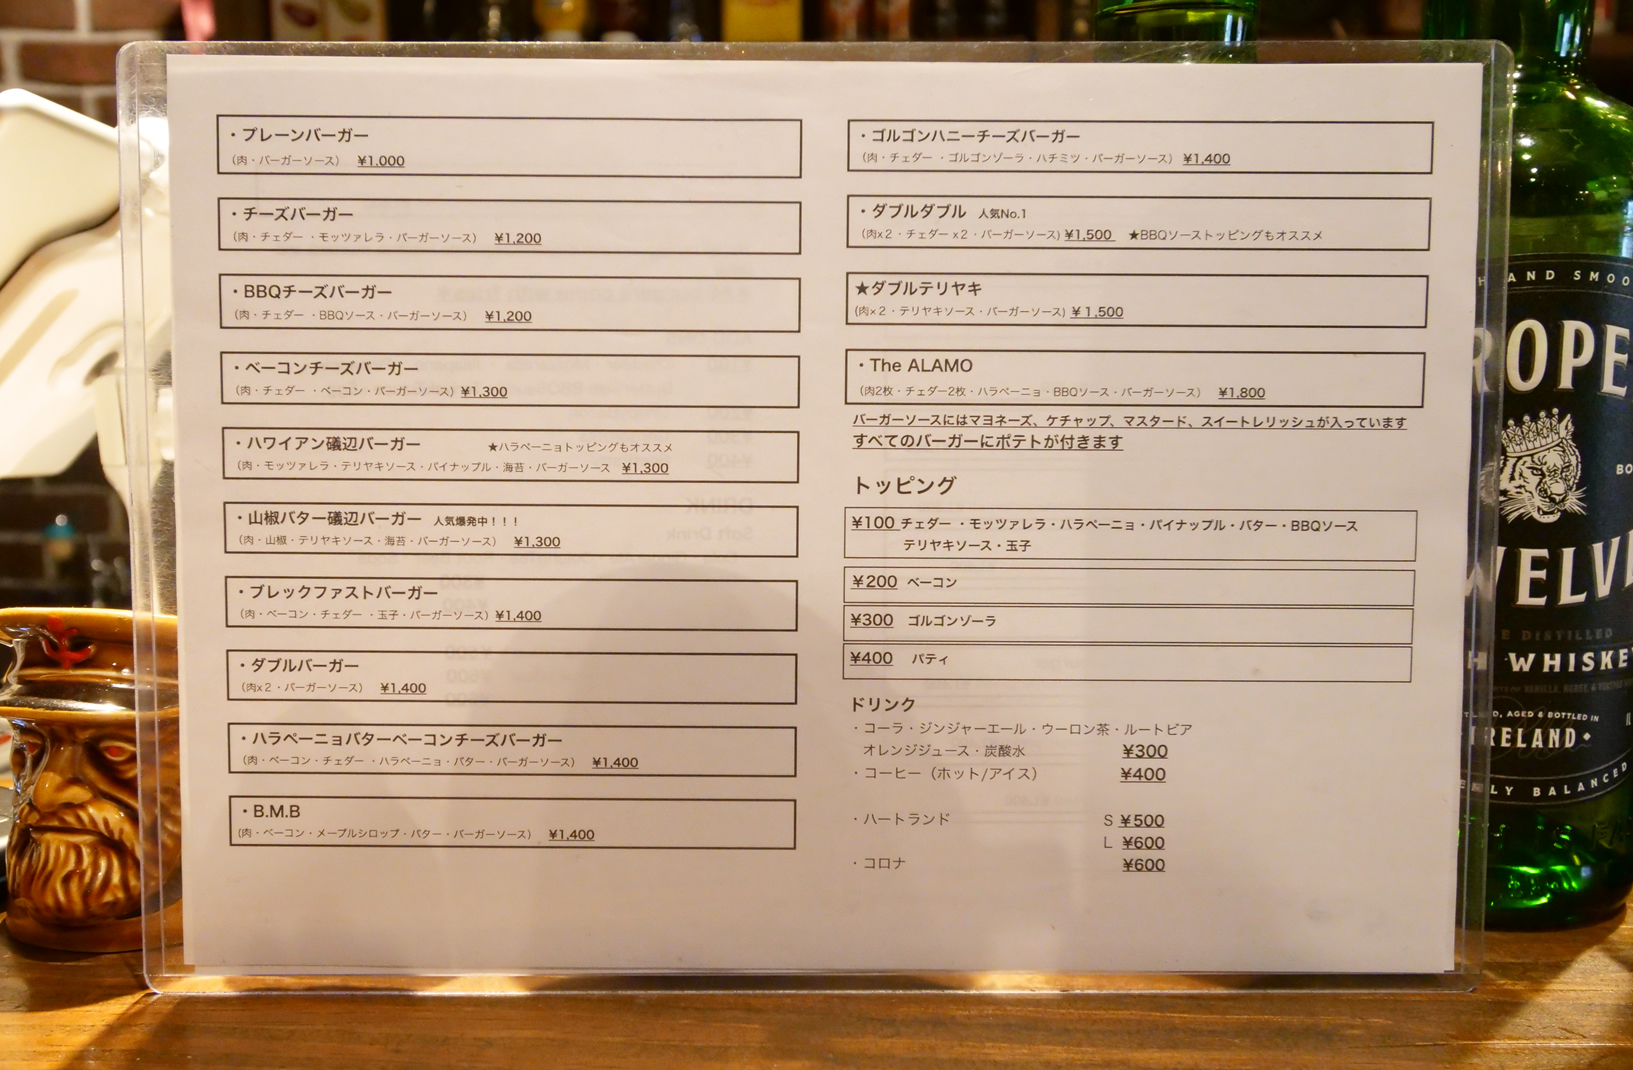 ・プレーンバーガー
（肉・バーガーソース） ¥1,000
・チーズバーガー
（肉・チェダー ・モッツァレラ・バーガーソース） ¥1,200
・BBQチーズバーガー
（肉・チェダー ・BBQソース・バーガーソース） ¥1,200
・ベーコンチーズバーガー
（肉・チェダー ・ベーコン・バーガーソース） ¥1,300
・ハワイアン礒辺バーガー ★ハラペーニョトッピングもオススメ
（肉・モッツァレラ・テリヤキソース・パイナップル・海苔・バーガーソース ¥1,300
・山椒バター礒辺バーガー 人気爆発中！！！
（肉・山椒・テリヤキソース・海苔・バーガーソース） ¥1,300
・ブレックファストバーガー
（肉・ベーコン・チェダー ・玉子・バーガーソース） ¥1,400
・ダブルバーガー
（肉x２・バーガーソース） ¥1,400
・ハラペーニョバターベーコンチーズバーガー
（肉・ベーコン・チェダー ・ハラペーニョ・バター・バーガーソース） ¥1,400
・B.M.B
（肉・ベーコン・メープルシロップ・バター・バーガーソース） ¥1,400
・ゴルゴンハニーチーズバーガー
（肉・チェダー ・ゴルゴンゾーラ・ハチミツ・バーガーソース） ¥1,400
・ダブルダブル 人気No.1
（肉x２・チェダー x２・バーガーソース) ¥1,500 ★BBQソーストッピングもオススメ
★ダブルテリヤキ
(肉×２・テリヤキソース・バーガーソース) ¥ 1,500
・The ALAMO
（肉2枚・チェダー2枚・ハラペーニョ・BBQソース・バーガーソース） ¥1,800
バーガーソースにはマヨネーズ、ケチャップ、マスタード、スイートレリッシュが入っています
すべてのバーガーにポテトが付きます
トッピング
¥100 チェダー ・モッツァレラ・ハラペーニョ・パイナップル・バター・BBQソース
テリヤキソース・玉子
¥200 ベーコン
¥300 ゴルゴンゾーラ
¥400 パティ
ドリンク
・コーラ・ジンジャーエール・ウーロン茶・ルートビア
オレンジジュース・炭酸水 ¥300
・コーヒー（ホット/アイス） ¥400
・ハートランド S ¥500
L ¥600
・コロナ ¥600
AND SMOO
ROPE
WELV
DISTILLED
WHISKE
D, AGED & BOTTLED IN
IRELAND
LY BALANCED